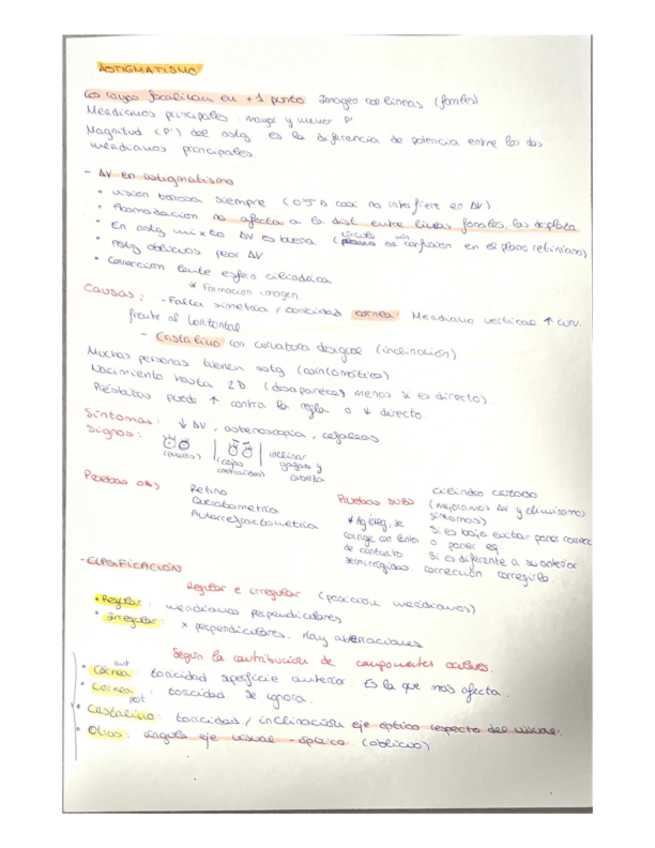 ASTIGMATISMO
Los rayos focalizan en +1 punto. Imagen con lineas (focales)
Meridianos principales: mayor y menor P'
Magnitud (P') del astg es la diferencia de potencia entre los dos
meridianos principales.
- AV en astigmatismo
• vision borrosa siempre (0'5 D casi no interfiere en AV).
• Acomodacion no afecta a la dist entre lineas focales, las desplaza
• En astg mixto AV es buena (circulo min de confusion en el plano retiniano)
• Astg oblicuos peor AV
• Correccion lente esfero cilindrica
* Formacion imagen.
Causas: - Falta simetria / toricidad cornea. Meridiano vertical ↑ curv.
frente al horizontal
- Cristalino con curvatura desigual (inclinación)
Muchas personas tienen astg (asintomatico)
Nacimiento hasta 2D (desaparece, menos si es directo).
Présbitas puede ↑ contra la regla o ↓ directo.
Síntomas: ↓ AV, astenoscopia, cefaleas
Signos: (cejas contraidas) inclinar gafas y cabeza
Pruebas obj
Retino
Queratometria
Autorrefractometria
Pruebas subj
* Ag irreg. se
corrige con lente
de contacto
semirrigidas.
cilindro cruzado
(mejoramos AV y eliminamos
síntomas)
Si es bajo evitar poner correc
o poner eq.
Si es diferente a su anterior
corrección corregirla.
- CLASIFICACIÓN
Regular e irregular (posición meridianos)
• Regular: meridianos perpendiculares
• Irregular: x perpendiculares. Hay aberraciones
Según la contribucion de componentes oculares.
• Córnea ant: toricidad superficie anterior. Es la que mas afecta.
• Córnea post: toricidad. Se ignora.
• Cristalino: toricidad / inclinación eje optico respecto del visual.
• Otros: ángulo eje visual - óptico. (oblicuo)